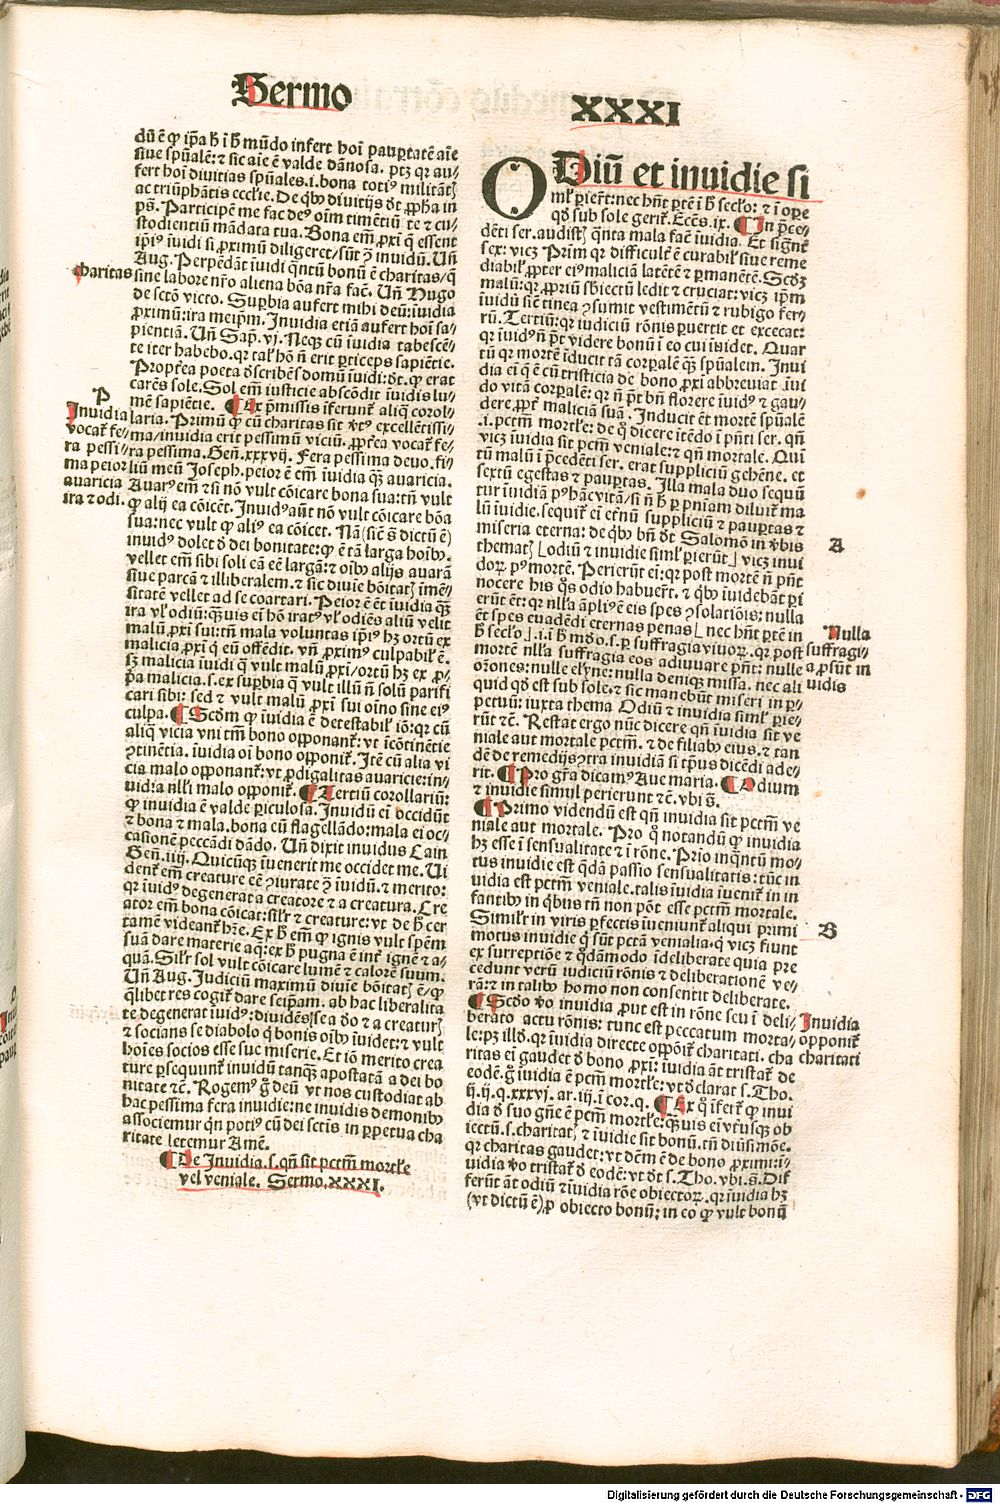 Sermo
XXXI
dū ē ꝙ ip̄a ħ ī ħ mūdo infert hoī paup̲tatē aīe
siue sp̄ualē: ⁊ sic aīe ē valde dānosa. ptꝫ qr au⸗
fert hoī diuitias sp̄uales.i.bona totiꝰ militātꝭ
ac triūphātis eccl̄ie. De qb̄ꝰ diuitijs d̄t ꝓpħa in
ps̄. Participem me fac deꝰ oīm timētiū te ⁊ cu⸗
stodientiū mādata tua. Bona em̄ ꝓxi q̄ essent
ip̄iꝰ iuidi si ꝓximū diligeret/sūt ꝯ̄ inuidū. Un̄
Aug. Perpēdāt iuidi qntū bonū ē charitas/q̄
sine labore nr̄o aliena bōa nr̄a fac̄. Un̄ Hugo
de sctō victo. Supbia aufert mihi deū: iuidia
ꝓximū: ira meip̄m. Inuidia etiā aufert hoī sa⸗
pientiā. Un̄ Sap̄. vj. Neqꝫ cū iuidia tabescē⸗
te iter habebo. qr tal' hō n̄ erit p̲ticeps sapiētie.
Propr̄ea poeta d̄scribēs domū iuidi: d̄t. ꝙ erat
carēs sole. Sol em̄ iusticie abscōdit iuidis lu⸗
mē sapiētie. ¶ Ex p̄missis īferunt̄ aliq corol⸗
laria. Primū ꝙ cū charitas sit v̄tꝰ excellētissi⸗
ma/inuidia erit pessimū viciū. ꝓpr̄ea vocat̄ fe⸗
ra pessima. Gen̄.xxxvij. Fera pessima deuo. fi⸗
liū meū Joseph. peior ē em̄ iuidia qꝫ auaricia.
Auarꝰ em̄ ⁊ si nō vult cōicare bona sua: tn̄ vult
ꝙ alij ea cōicēt. Inuidꝰ aūt nō vult cōicare bōa
sua: nec vult ꝙ aliꝰ ea cōicet. Nā (sic̄ s̄ dictū ē)
inuidꝰ dolet d̄ dei bonitate: ꝙ ē tā larga hoīb̄ꝰ.
vellet em̄ sibi soli eā eē largā: ⁊ oīb̄ꝰ alijs auarā
siue parcā ⁊ illiberalem. ⁊ sic diuīe bōitatꝭ īmē⸗
sitatē vellet ad se coartari. Peior ē ēt iuidia qꝫ
ira vl' odiū: qꝫuis ei hō iratꝰ vl' odiēs aliū velit
malū ꝓxi sui: tn̄ mala voluntas ip̄iꝰ hꝫ ortū ex
malicia ꝓxi q̄ eū offēdit. vn̄ ꝓximꝰ culpabil' ē.
sꝫ malicia iuidi q̄ vult malū ꝓxi/ortū hꝫ ex ꝓ⸗
p̄a malicia.s.ex supbia q̄ vult illū n̄ solū parifi
cari sibi: sed ⁊ vult malū ꝓxi sui oīno sine eiꝰ
culpa. ¶ Scd̄m ꝙ īuidia ē detestabil' iō: qr cū
aliq vicia vni tm̄ bono opponant̄: vt īcōtinētie
ꝯtinētia. īuidia oī bono opponit̄. Itē cū alia vi
cia malo opponant̄: vt ꝓdigalitas auaricie: in⸗
uidia nll'i malo opponit̄. ¶ Tertiū corollariū:
ꝙ inuidia ē valde p̲iculosa. Inuidū ei occidūt
⁊ bona ⁊ mala. bona eū flagellādo: mala ei oc⸗
casionē peccādi dādo. Un̄ dixit inuidus Cain
Gen̄.iiij. Quicūqꝫ īuenerit me occidet me. Ui
dent̄ em̄ creature eē ꝯiurate ꝯ̄ īuidū. ⁊ merito:
qr īuidꝰ degenerat a creatore ⁊ a creatura. Cre
ator em̄ bona cōicat: sil'r ⁊ creature: vt de ħ cer
tamē videant̄ hr̄e. Ex ħ em̄ ꝙ ignis vult spēm
suā dare materie aq̄: ex ħ pugna ē int̄ ignē ⁊ a⸗
quā. Sil'r sol vult cōicare lumē ⁊ calorē suum.
Un̄ Aug. Judiciū maximū diuīe bōitatꝭ ē/ꝙ
qlibet res cogit̄ dare seip̄am. ab hac liberalita
te degenerat īuidꝰ: diuidēs se a d̄o ⁊ a creaturꝭ
⁊ socians se diabolo q̄ bonis oīb̄ꝰ īuidet: ⁊ vult
hoīes socios esse sue miserie. Et iō merito crea
ture p̲sequunt̄ inuidū tanqꝫ apostatā a dei bo
nitate ⁊c̄. Rogemꝰ g̊ deū vt nos custodiat ab
hac pessima fera inuidie: ne inuidis demonibꝰ
associemur qn̄ potiꝰ cū dei sctis in p̲petua cha
ritate letemur Amē.
¶ De Inuidia.s.qn̄ sit pctm̄ mortl'e
vel veniale. Sermo.XXXI.
charitas
P
Inuidia
vocat̄ fe⸗
ra pessi⸗
ma peior
auaricia
ira ⁊ odi.
ODiū et inuidie si
ml' p̲ier̄t: nec hn̄t p̲tē ī ħ secl'o: ⁊ ī oꝑe
qd̄ sub sole gerit̄. Eccs̄. ix. ¶ In p̄ce⸗
dēti ser. audistꝭ qnta mala fac̄ īuidia. Et sign̄t̄
sex: vicꝫ Prim̄ qr difficult̄ ē curabil' siue reme
diabil' ꝓpter eiꝰ maliciā latētē ⁊ p̲manētē. Scd̄ꝫ
malū: qr ꝓpriū sb̄iectū ledit ⁊ cruciat: vicꝫ ip̄m
īuidū sic̄ tinea ꝯsumit vestimētū ⁊ rubigo fer⸗
rū. Tertiū: qr iudiciū rōnis p̲uertit et excecat:
qr īuidꝰ n̄ pt̄ videre bonū ī eo cui īuidet. Quar
tū qr mortē īducit tā corp̲alē qꝫ sp̄ualem. Inui
dia ei q̄ ē cū tristicia de bono ꝓxi abbreuiat īui
do vitā corp̲alē: qr n̄ pt̄ bn̄ florere īuidꝰ ⁊ gau⸗
dere ꝓpt̄ maliciā suā. Inducit ēt mortē sp̄ualē
.i. pctm̄ mortl'e: de q̊ dicere itēdo ī pn̄ti ser. qn̄
vicꝫ īuidia sit pctm̄ veniale: ⁊ qn̄ mortale. Quī
tū malū ī p̄cedēti ser. erat suppliciū gehēne. et
sextū egestas ⁊ paup̲tas. Illa mala duo sequū
tur īuidiā pꝰ hāc vitā/si n̄ ħ p̲ pn̄iam diluit̄ ma
lū īuidie. sequit̄ ei et̄nū suppliciū ⁊ paup̲tas ⁊
miseria eterna: de qb̄ꝰ bn̄ d̄t Salomō in v̄bis
thematꝭ ⌊odiū ⁊ inuidie siml' p̲ierūt⌋ vicꝫ inui
doꝝ pꝰ mortē. Perierūt ei: qr post mortē n̄ pn̄t
nocere his q̄s odio habuer̄t. ⁊ qb̄ꝰ iuidebāt p̲i
erūt ēt: qr nll'a āpliꝰ ē eis spes ꝯsolatiōis: nulla
ēt spes euadēdi eternas penas⌊ nec hn̄t p̲tē in
ħ secl'o⌋.i.ī ħ mūdo.s.p̲ suffragia viuoꝝ. qr post
mortē nll'a suffragia eos adiuuare pn̄t: nulle
orōnes: nulle elyn̄e: nulla deniqꝫ missa. nec ali
quid qd̄ est sub sole. ⁊ sic manebūt miseri in p̲⸗
petuū: iuxta thema Odiū ⁊ inuidia siml' p̲ie⸗
rūt ⁊c̄. Restat ergo nūc dicere qn̄ iuidia sit ve
niale aut mortale pctm̄. ⁊ de filiab̄ꝰ eius. ⁊ tan
dē de remedijs ꝯtra inuidiā si tp̄us dicēdi ade⸗
rit. ¶ Pro gr̄a dicamꝰ Aue maria. ¶ Odium
⁊ inuidie simul perierunt ⁊c̄. vbi s̄.
¶ Primo videndū est qn̄ inuidia sit pctm̄ ve
niale aut mortale. Pro q̊ notandū ꝙ inuidia
hꝫ esse ī sensualitate ⁊ ī rōne. Prīo inqntū mo⸗
tus inuidie est q̄dā passio sensualitatis: tūc in
uidia est pctm̄ veniale. talis īuidia īuenit̄ in in
fantib̄ꝰ in qb̄us tn̄ non pōt esse pctm̄ mortale.
Simil'r in viris p̲fectis īueniunt̄ aliqui primi
motus inuidie q̄ sūt pctā venialia. q̄ vicꝫ fiunt
ex surreptiōe ⁊ q̊dāmodo īdeliberate quia pre
cedunt verū iudiciū rōnis ⁊ deliberationē ve⸗
rā: ⁊ in talib̄ꝰ homo non consentit deliberate.
¶ Scd̄o v̊o inuidia ꝓut est in rōne seu ī deli⸗
berato actu rōnis: tunc est peccatum morta⸗
le: pꝫ ill'd. qr īuidia directe oppōit̄ charitati. cha
ritas ei gaudet d̄ bono ꝓxi: iuidia āt tristat̄ de
eodē. g̊ iuidia ē pctm̄ mortl'e: vt d̄clarat s. Tho.
ij. ij. q. xxxvj. ar. iij. ī cor. q. ¶ Ex q̊ īfert̄ ꝙ inui
dia d̄ suo gn̄e ē pctm̄ mortl'e: qꝫuis ei vt̄usqꝫ ob
iectū.s.charitatꝭ ⁊ īuidie sit bonū. tn̄ diūsimōe.
qr charitas gaudet: vt dēm ē de bono ꝓximi: i⸗
uidia v̊o tristat̄ d̄ eodē: vt d̄t s. Tho. vbi.s̄. Dif
ferūt āt odiū ⁊ īuidia rōe obiectoꝝ. qr īuidia hꝫ
(vt dictū ē) ꝓ obiecto bonū: in eo ꝙ vult bonū
A
Nulla
suffragi⸗
a ꝓsūt in
uidis
B
Inuidia
opponit̄
charitati
Digitalisierung gefördert durch die Deutsche Forschungsgemeinschaft - DFG